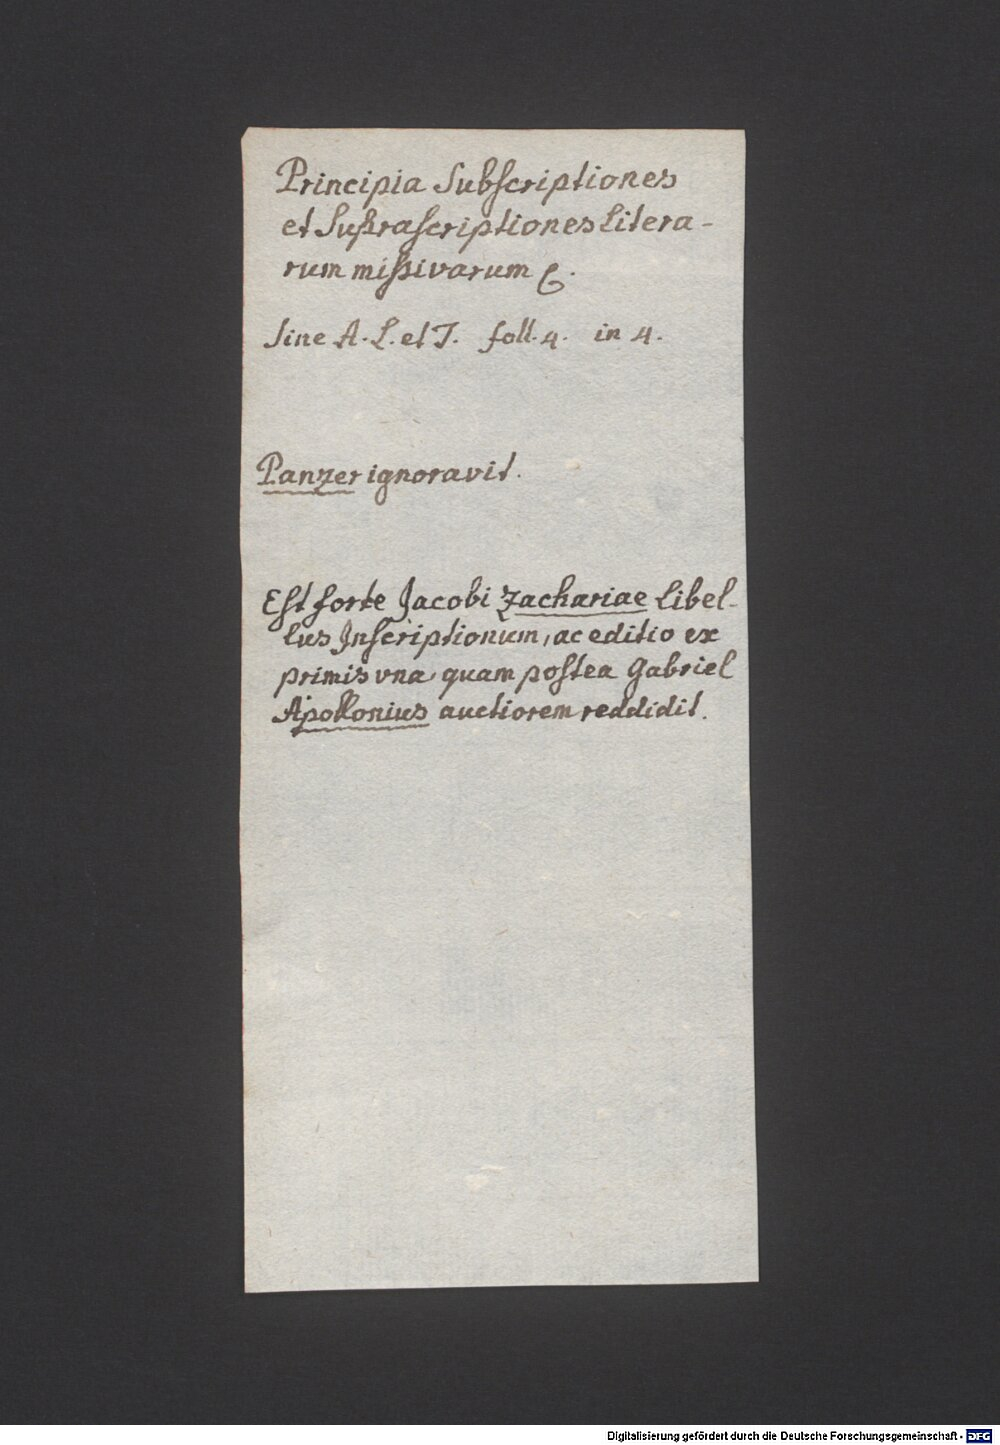 Principia Subscriptiones
et Suprascriptiones Litera-
rum missivarum &.
sine A. L. et T. foll. 4. in 4.
Panzer ignoravit.
Est forte Jacobi Zachariae Libel-
lus Inscriptionum, ac editio ex
primis vna quam postea Gabriel
Apollonius auctiorem reddidit.
Digitalisierung gefördert durch die Deutsche Forschungsgemeinschaft - DFG